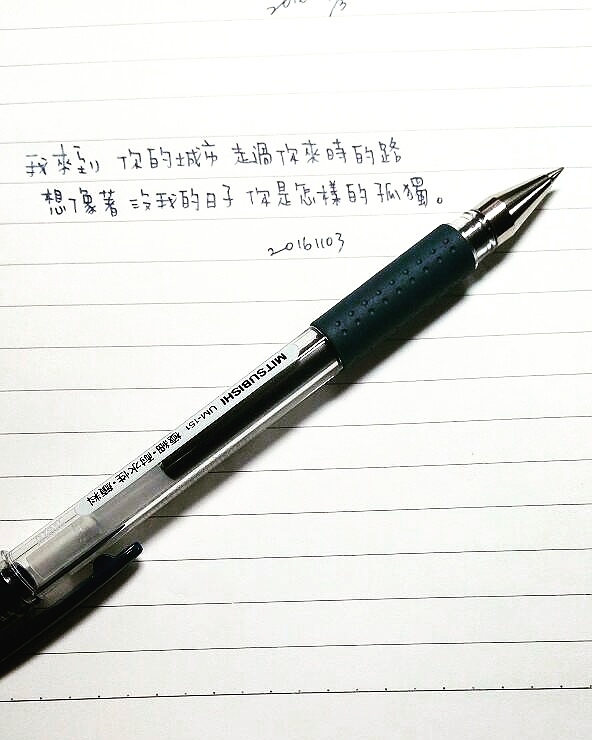 我來到 你的城市 走過你來時的路
想像著 沒我的日子 你是怎樣的孤獨。
20161103
MITSUBISHI UM-151 極細·耐水性·顏料